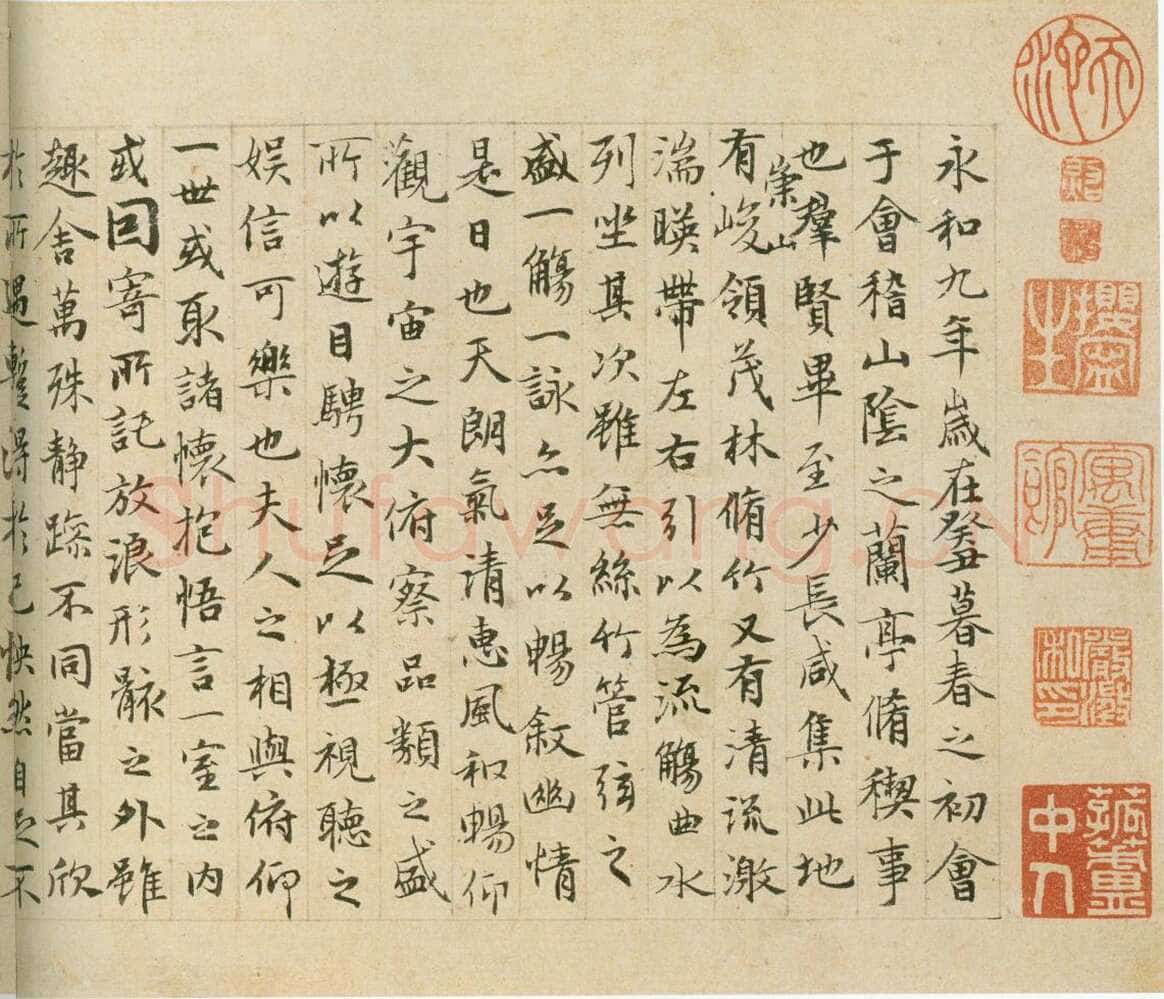 永和九年歲在癸丑暮春之初會
于會稽山陰之蘭亭脩稧事
也羣賢畢至少長咸集此地
有崇山峻領茂林脩竹又有清流激
湍暎帶左右引以為流觴曲水
列坐其次雖無絲竹管弦之
盛一觴一詠亦足以暢敘幽情
是日也天朗氣清惠風和暢仰
觀宇宙之大俯察品類之盛
所以遊目騁懷足以極視聽之
娛信可樂也夫人之相與俯仰
一世或取諸懷抱悟言一室之內
或因寄所託放浪形骸之外雖
趣舍萬殊静躁不同當其欣
於所遇暫得於己怏然自足不
嚴澂私印
菰蘆中人
Shufawang.CN